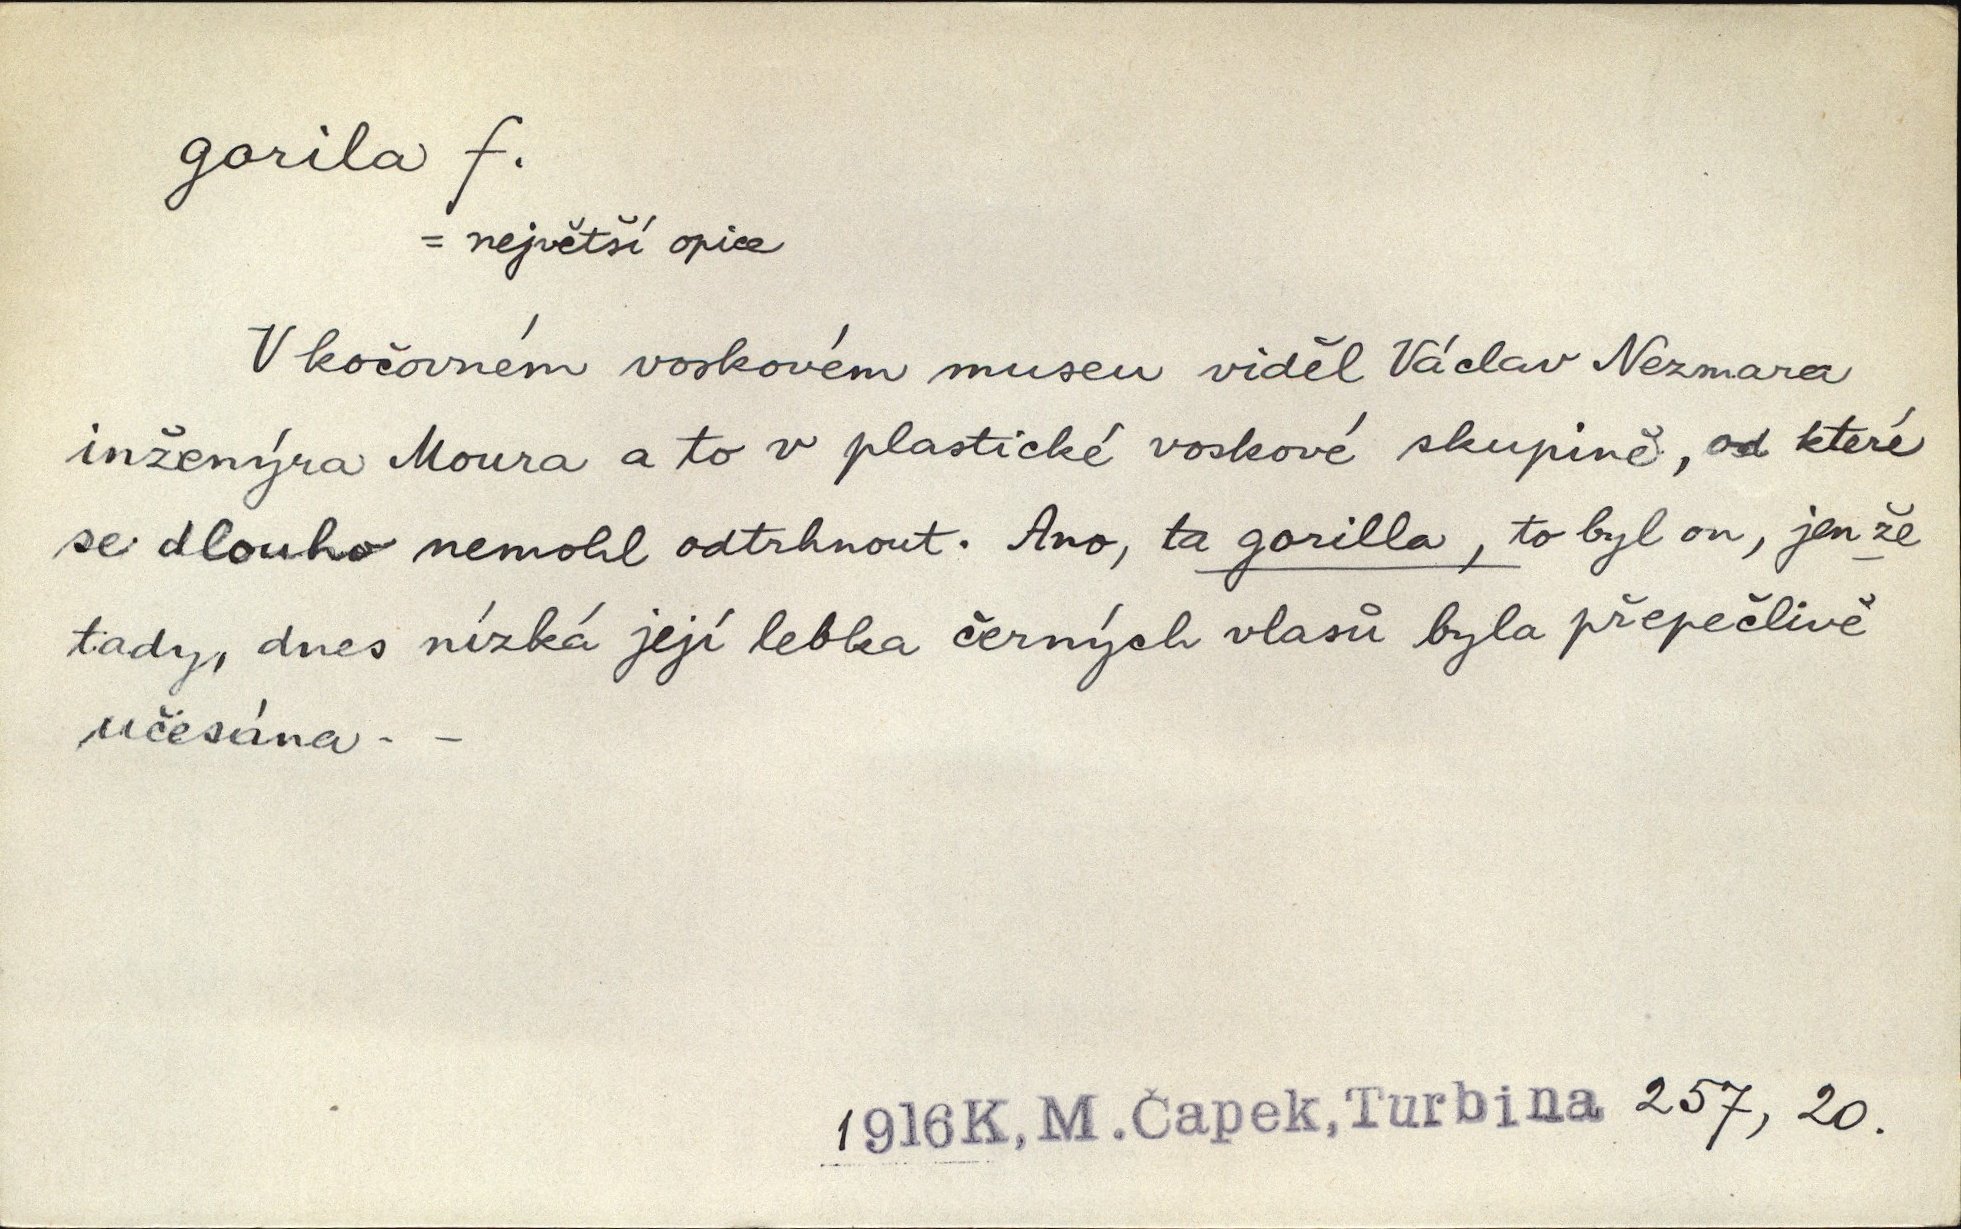 gorila f.
= největší opice
V kočovném voskovém museu viděl Václav Nezmara
inženýra Moura a to v plastické voskové skupině, od které
se dlouho nemohl odtrhnout. Ano, ta gorilla, to byl on, jenže
tady, dnes nízká její lebka černých vlasů byla přepečlivě
učesána - -
1916 K, M. Čapek, Turbina 257, 20.